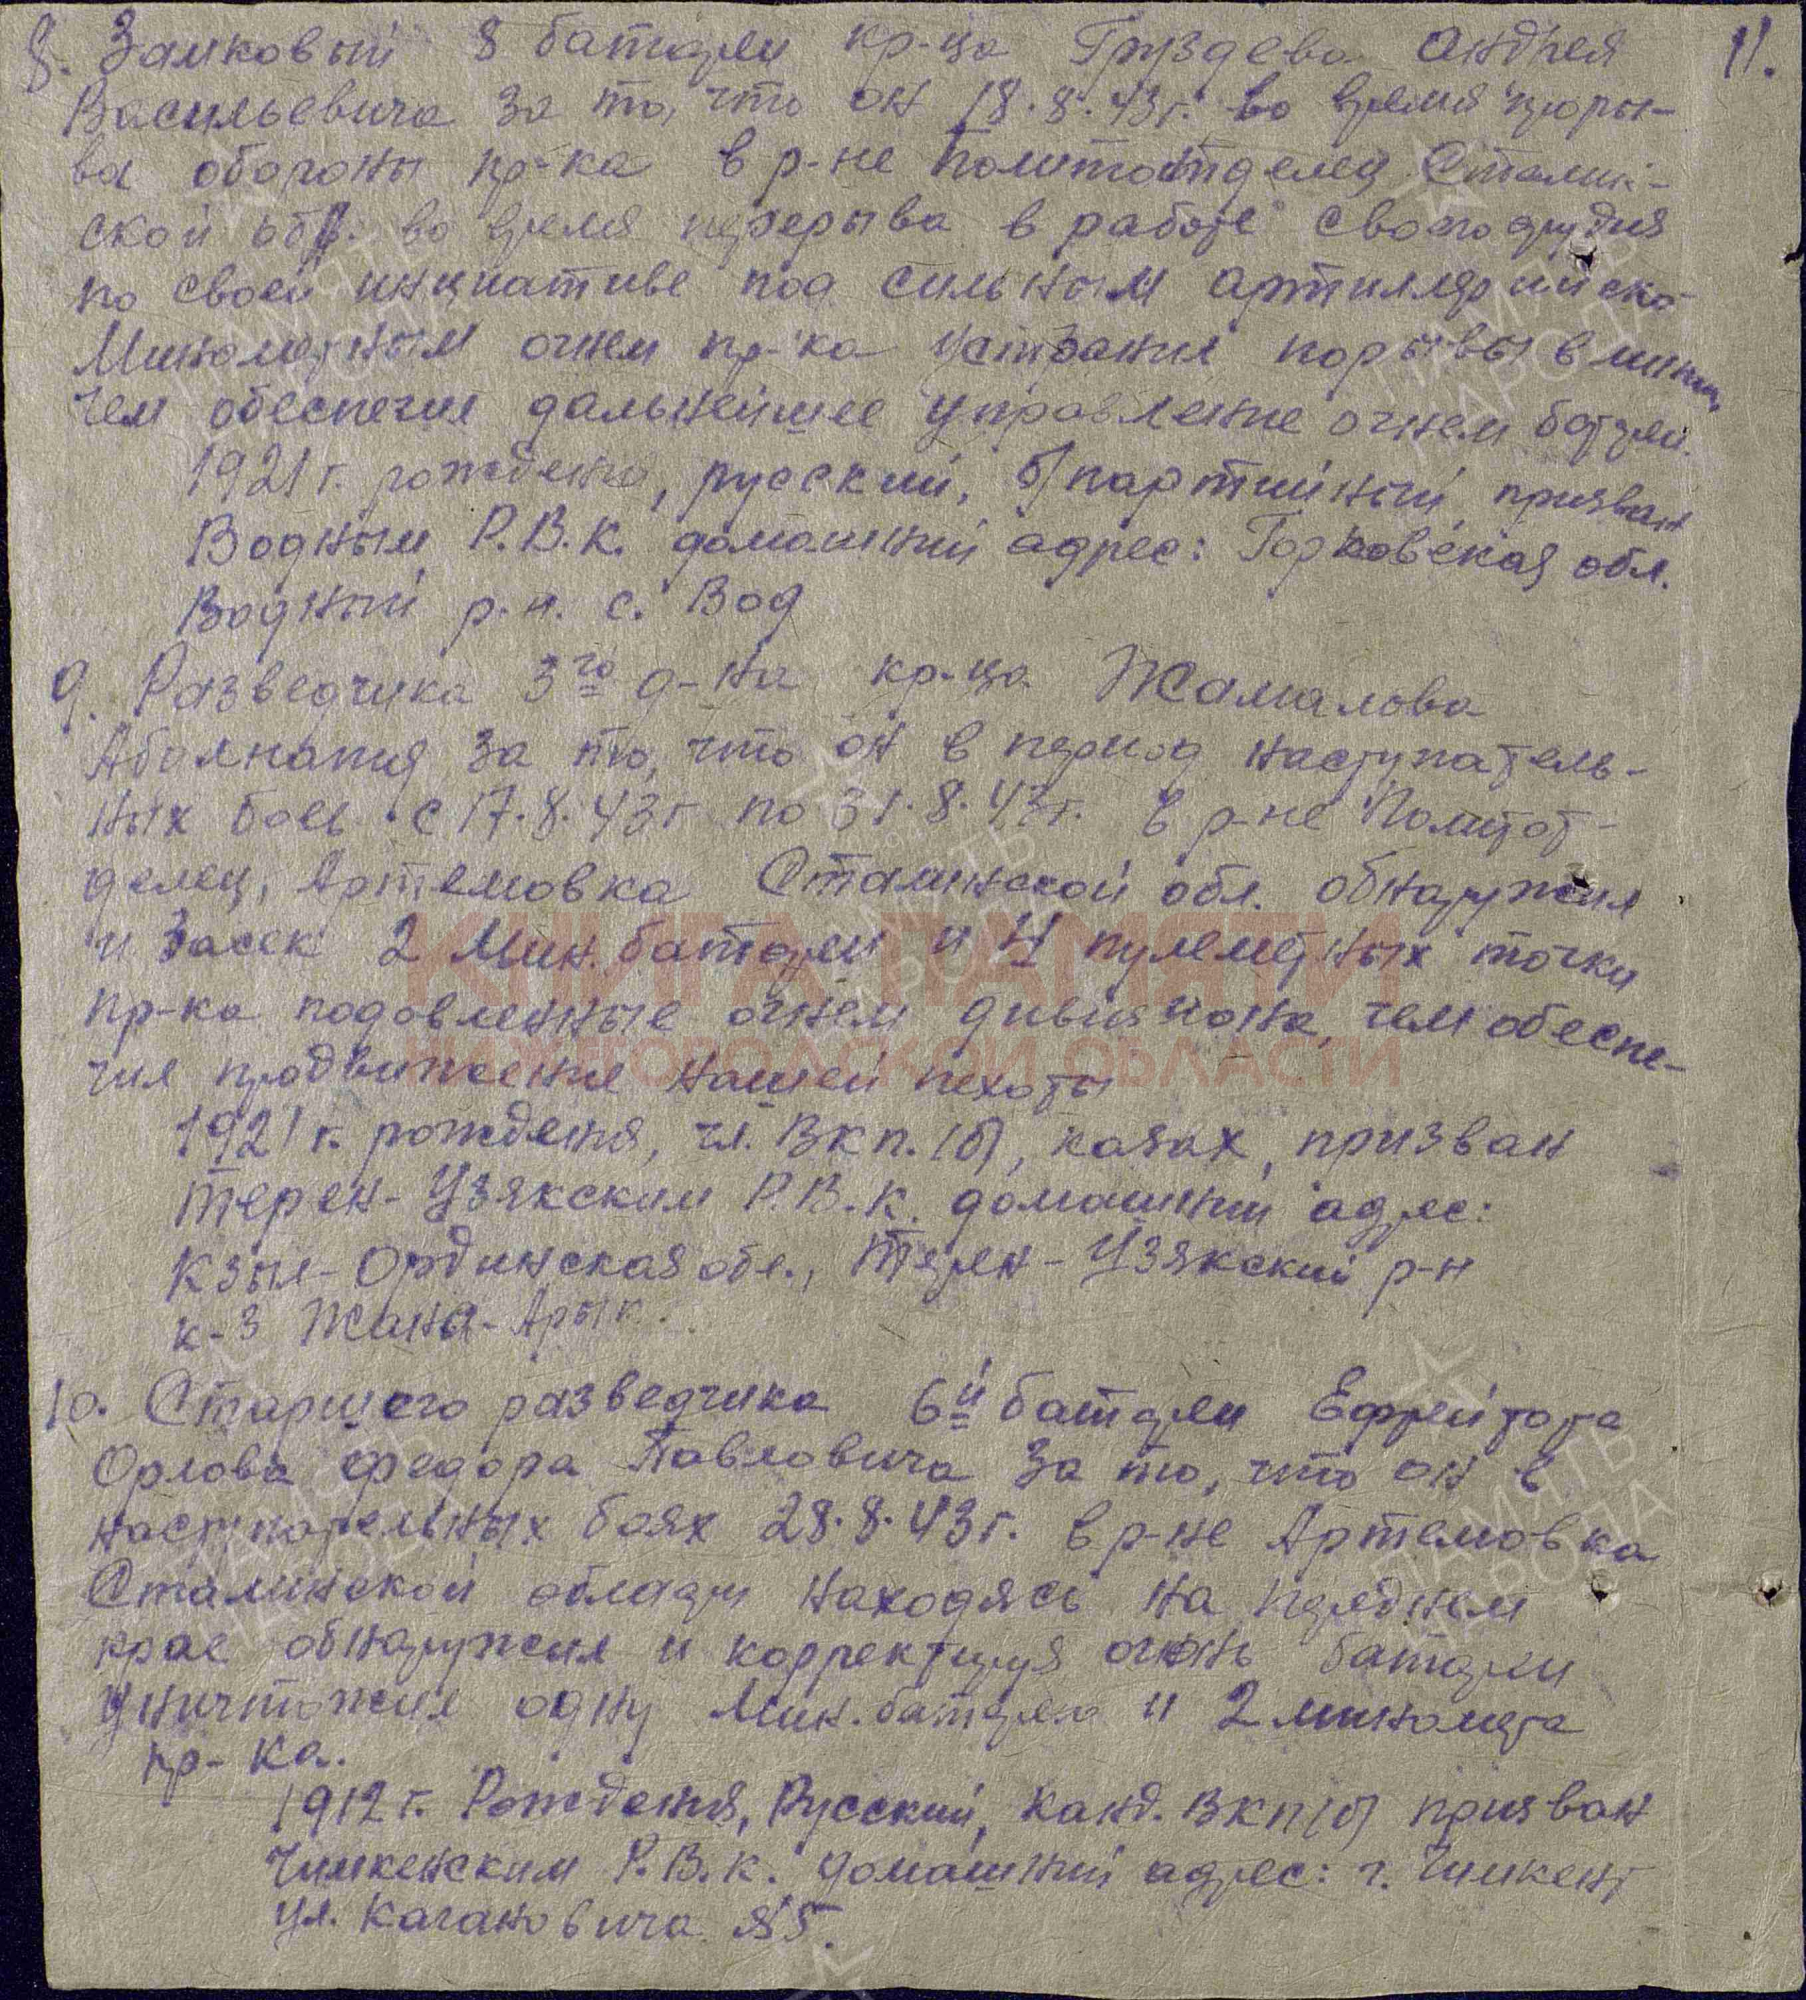 11.
8. Замковый 8 батареи кр-ца Груздева Андрея
Васильевича за то, что он 18.8.43г. во время проры-
ва обороны пр-ка в р-не Политотделец Сталин-
ской обл. во время перерыва в работе своего орудия
по своей инциативе под сильным артиллярийско
Минометным огнем пр-ка устранил порывы в линии,
чем обеспечил дальнейшее управление огнем батареи.
1921 г. рождения, русский, б/партийный призван
Водным Р.В.К. домашний адрес: Горковская обл.
Водный р-н. с. Вад
9. Разведчика 3го д-на кр-ца Жамалова
за то, что он в период наступатель-
ных боев с 17.8.43г по 31.8.43г. в р-не Политот-
делец, Артемовка Сталинской обл. обнаружил
и засек 2 Мин. батареи и 4 пулеметных точки
пр-ка подовленные огнем дивизиона, чем обеспе-
чил продвижение нашей пехоты
1921 г. рождения, чл. ВКП.(б), казах, призван
Терен-Узякским Р.В.К. домашний адрес:
Кзыл-Ординская обл., Терен-Узякский р-н
к-з Жана-Арык.
10. Старшего разведчика 6й батареи Ефрейтора
Орлова Федора Павловича за то, что он в
наступательных боях 28.8.43г. в р-не Артемовка
Сталинской области находясь на переднем
крае обнаружил и корректируя огонь батареи
уничтожил одну Мин. батарею и 2 миномета
пр-ка.
1912 г. Рождения, Русский, канд. ВКП(б) призван
Чимкенским Р.В.К. домашний адрес: г. Чимкент
ул. Кагановича №5.
КНИГА ПАМЯТИ
НИЖЕГОРОДСКОЙ ОБЛАСТИ
ПАМЯТЬ
НАРОДА